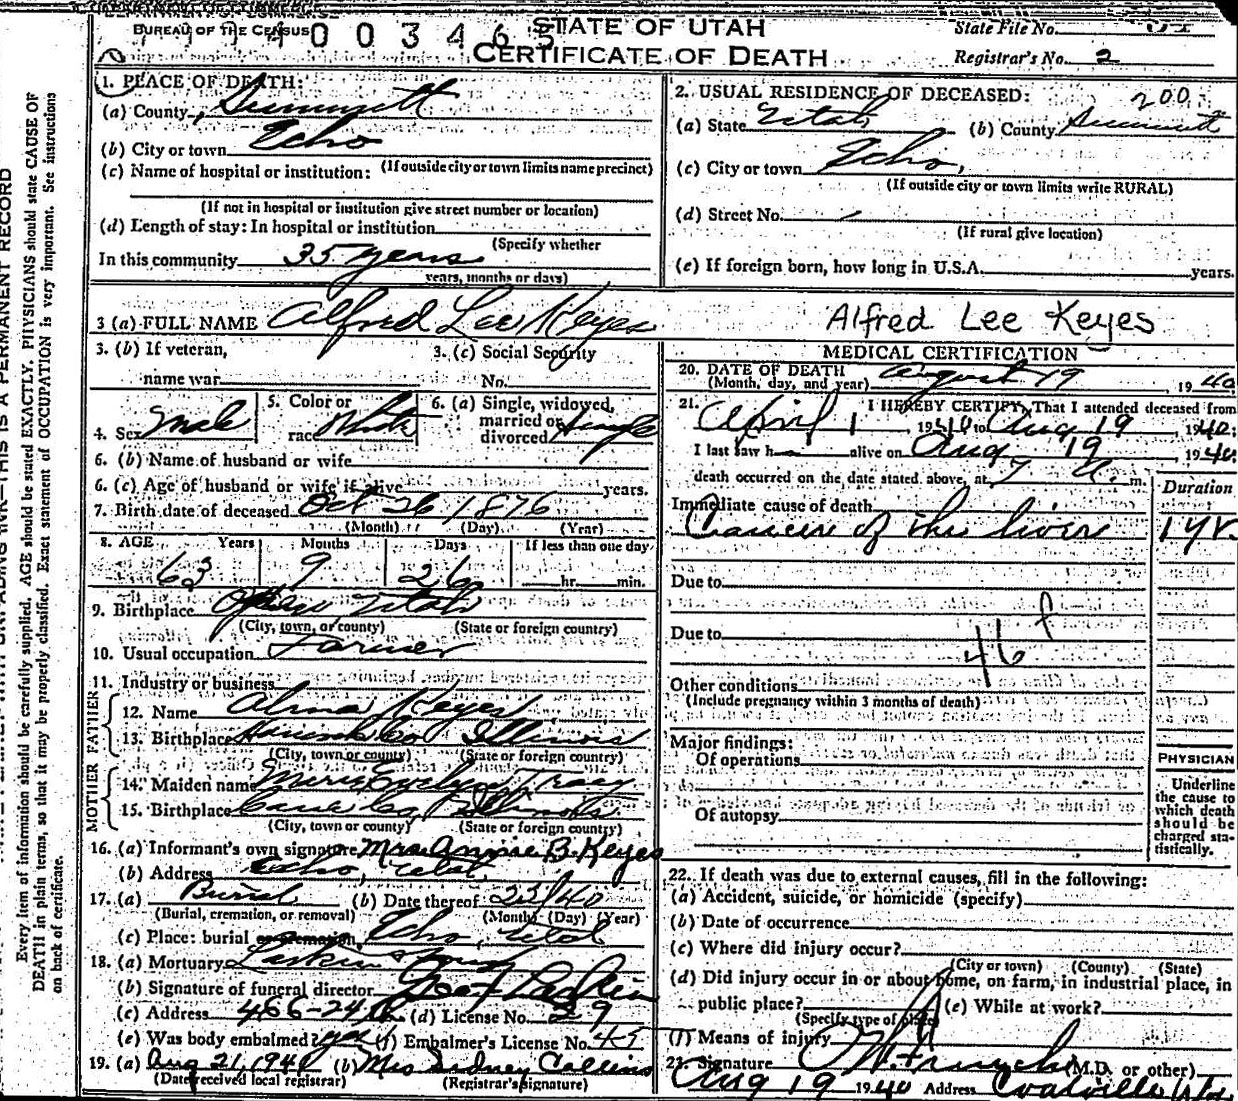 DEPARTMENT OF COMMERCE
BUREAU OF THE CENSUS
STATE OF UTAH
CERTIFICATE OF DEATH
State File No.
Registrar's No. 2
1. PLACE OF DEATH:
(a) County, Summitt
(b) City or town Echo
(If outside city or town limits name precinct)
(c) Name of hospital or institution:
(If not in hospital or institution give street number or location)
(d) Length of stay: In hospital or institution
(Specify whether
In this community 35 years
years, months or days)
2. USUAL RESIDENCE OF DECEASED: 200
(a) State Utah (b) County Summitt
(c) City or town Echo,
(If outside city or town limits write RURAL)
(d) Street No. -
(If rural give location)
(e) If foreign born, how long in U.S.A. years.
3 (a) FULL NAME Alfred Lee Keyes Alfred Lee Keyes
3. (b) If veteran, name war
3. (c) Social Security No.
4. Sex Male
5. Color or race White
6. (a) Single, widowed, married or divorced Single
6. (b) Name of husband or wife
6. (c) Age of husband or wife if alive years.
7. Birth date of deceased Oct 26 1876
(Month) (Day) (Year)
8. AGE Years Months Days If less than one day
63 9 26 hr. min.
9. Birthplace Utah
(City, town, or county) (State or foreign country)
10. Usual occupation Farmer
11. Industry or business
FATHER
12. Name Alma Keyes
13. Birthplace Co Illinois
(City, town or county) (State or foreign country)
MOTHER
14. Maiden name Mary Evelyn Tracy
15. Birthplace Co, Illinois
(City, town or county) (State or foreign country)
16. (a) Informant's own signature Mrs. Annie B. Keyes
(b) Address Echo, Utah
17. (a) Burial (b) Date thereof 23/40
(Burial, cremation, or removal) (Month) (Day) (Year)
(c) Place: burial or cremation Echo, Utah
18. (a) Mortuary Larkin & Sons
(b) Signature of funeral director Larkin
(c) Address 466-24 (d) License No. 29
(e) Was body embalmed? yes (f) Embalmer's License No. 45
19. (a) Aug 21, 1940 (b) Mrs Sidney Collins
(Date received local registrar) (Registrar's signature)
MEDICAL CERTIFICATION
20. DATE OF DEATH
(Month, day, and year) August 19, 1940
21. I HEREBY CERTIFY, That I attended deceased from
April 1 1940 to Aug 19 1940;
I last saw h alive on Aug 19 1940;
death occurred on the date stated above, at 7 a. m.
Duration
Immediate cause of death
Cancer of the liver 1 yr.
Due to
Due to
46 f
Other conditions
(Include pregnancy within 3 months of death)
Major findings:
Of operations
Of autopsy
PHYSICIAN
Underline the cause to which death should be charged statistically.
22. If death was due to external causes, fill in the following:
(a) Accident, suicide, or homicide (specify)
(b) Date of occurrence
(c) Where did injury occur?
(City or town) (County) (State)
(d) Did injury occur in or about home, on farm, in industrial place, in
public place? (e) While at work?
(Specify type of place)
(f) Means of injury
21. Signature (M.D. or other)
Aug 19 1940 Address Coalville Utah
Every item of information should be carefully supplied. AGE should be stated EXACTLY. PHYSICIANS should state CAUSE OF
DEATH in plain terms, so that it may be properly classified. Exact statement of OCCUPATION is very important. See instructions
on back of certificate.
THIS IS A PERMANENT RECORD